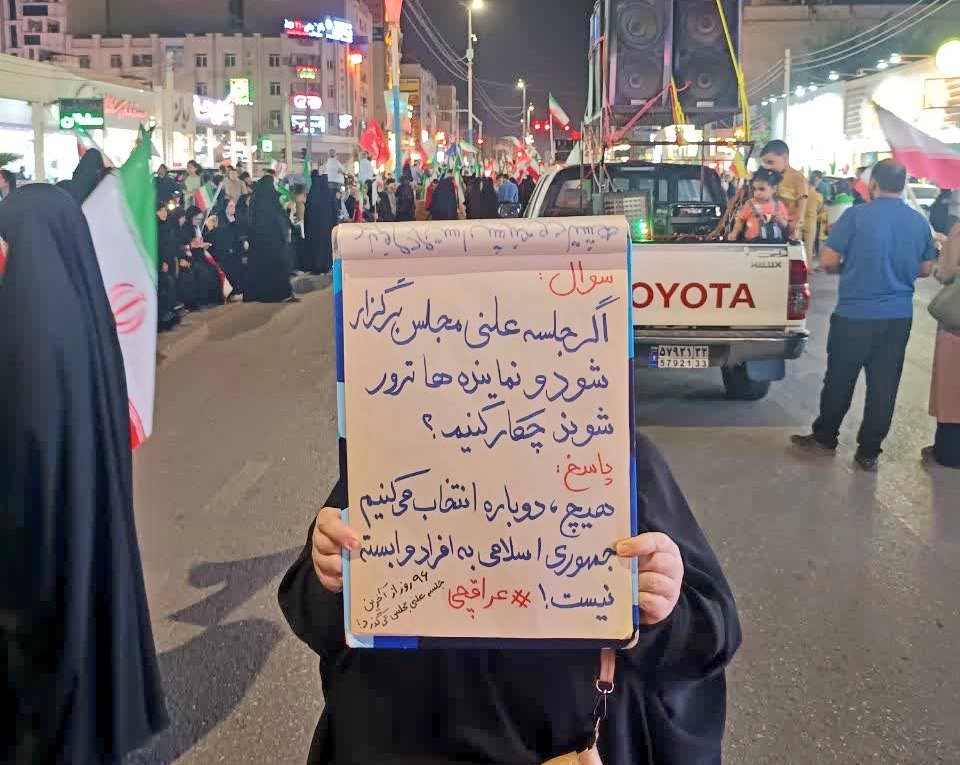 سوال:
اگر جلسه علنی مجلس برگزار
شود و نماینده ها ترور
شوند چکار کنیم؟
پاسخ:
هیچ، دوباره انتخاب می‌کنیم
جمهوری اسلامی به افراد وابسته
نیست! #عراقچی
۹۶ روز از آخرین
جلسه علنی مجلس می گذرد!
TOYOTA
HILUX
۵۷۹۲۱ ۳۳
57921 33